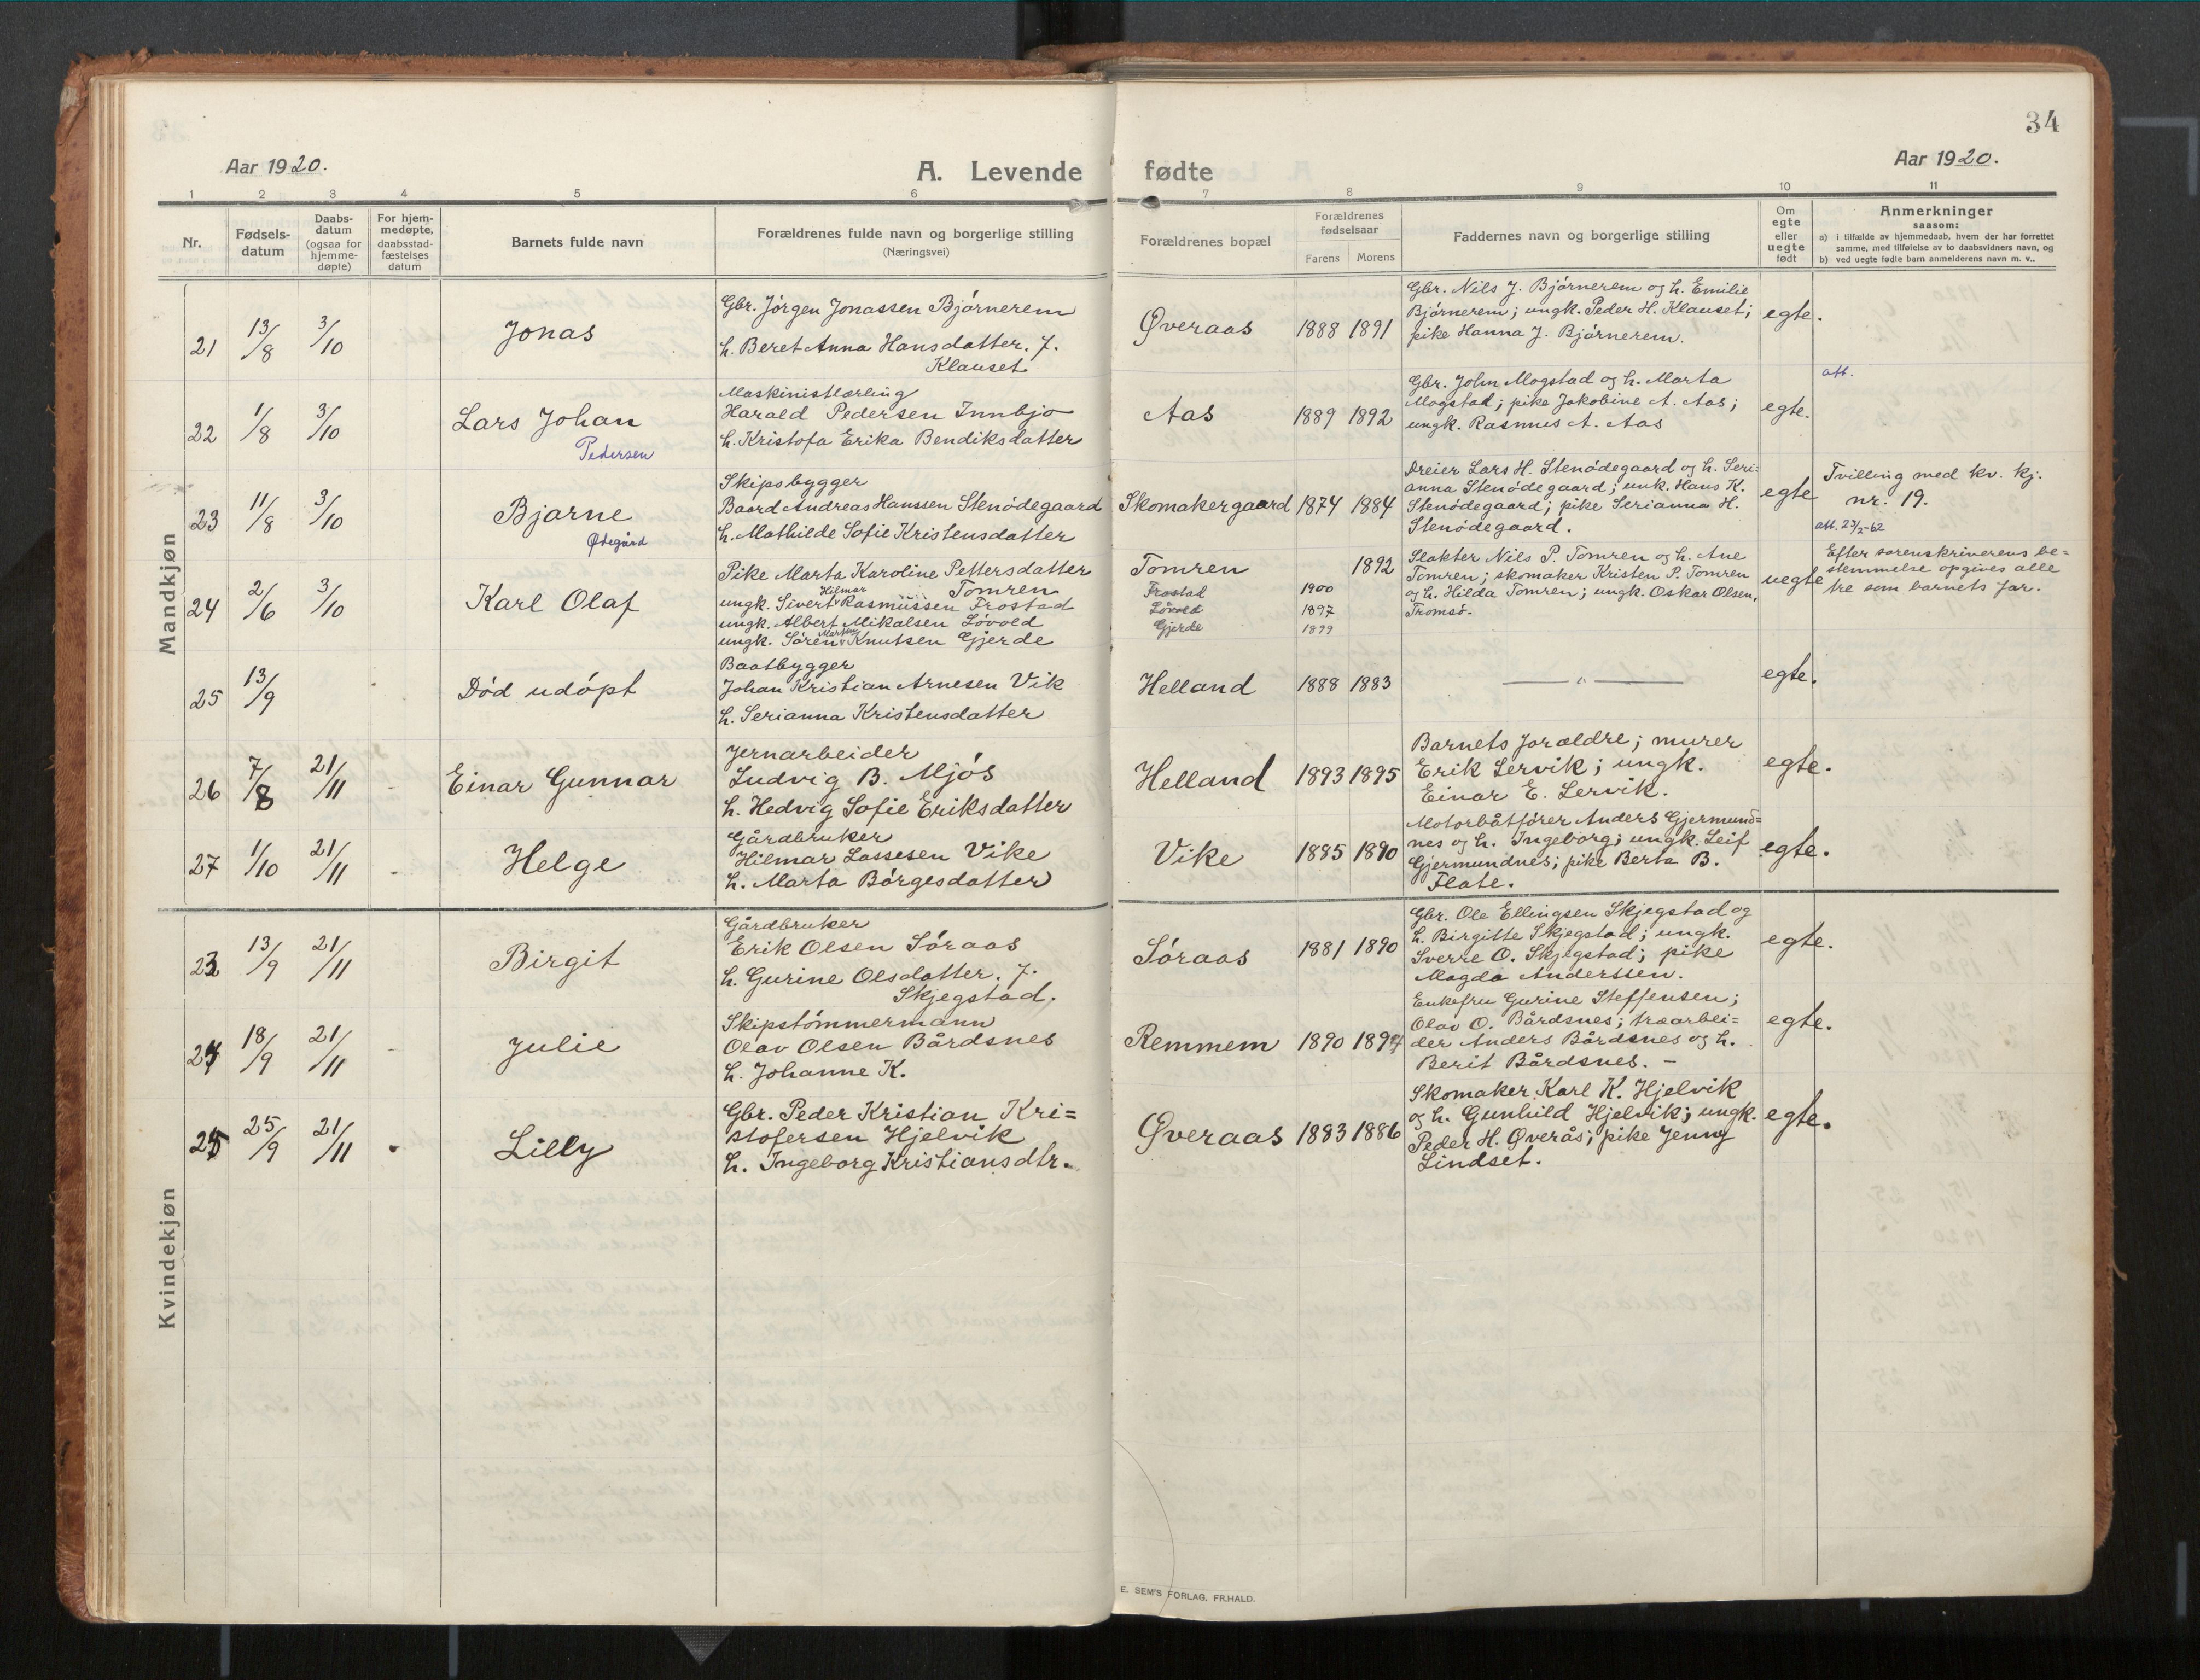 34
Aar 1920.
A. Levende fødte
Aar 1920.
1 2 3 4 5 6 7 8 9 10 11
Nr.
Fødsels-
datum
Daabs-
datum
(ogsaa for
hjemme-
døpte)
For hjem-
medøpte,
daabsstad-
fæstelses
datum
Barnets fulde navn
Forældrenes fulde navn og borgerlige stilling
(Næringsvei)
Forældrenes bopæl
Forældrenes
fødselsaar
Farens Morens
Faddernes navn og borgerlige stilling
Om
egte
eller
uegte
født
Anmerkninger
saasom:
a) i tilfælde av hjemmedaab, hvem der har forrettet
samme, med tilføielse av to daabsvidners navn, og
b) ved uegte fødte barn anmelderens navn m. v..
Mandkjøn
21 13/8 3/10 Jonas
Gbr. Jørgen Jonassen Bjørnerem
h. Beret Anna Hansdatter. f.
Klauset
Øveraas 1888 1891
Gbr. Nils J. Bjørnerem og h. Emilie
Bjørnerem; ungk. Peder H. Klauset;
pike Hanna J. Bjørnerem.
egte.
22 1/8 3/10 Lars Johan
Pedersen
Maskinistlærling
Harald Pedersen Innbjo
h. Kristofa Erika Bendiksdatter
Aas 1889 1892
Gbr. John Mogstad og h. Marta
Mogstad; pike Jakobine A. Aas;
ungk. Rasmus A. Aas
egte.
att.
23 11/8 3/10 Bjarne
Ødegård
Skipsbygger
Baard Andreas Hanssen Stenødegaard
h. Mathilde Sofie Kristensdatter
Skomakergaard 1874 1884
Dreier Lars H. Stenødegaard og h. Seri-
anna Stenødegaard; unk. Hans K.
Stenødegaard; pike Serianna H.
Stenødegaard.
egte
Tvilling med kv. kj.
nr. 19.
att. 23/2-62
24 2/6 3/10 Karl Olaf
Pike Marta Karoline Pettersdatter
Tomren
Hilmar
ungk. Sivert Rasmussen Frostad
ungk. Albert Mikalsen Løvold
Martin
ungk. Søren Knutsen Gjerde
Tomren 1892
Frostad 1900
Løvold 1897
Gjerde 1899
Slakter Nils P. Tomren og h. Ane
Tomren; skomaker Kristen P. Tomren
og h. Hilda Tomren; ungk. Oskar Olsen,
Tromsø.
uegte
Efter sorenskriverens be-
stemmelse opgives alle
tre som barnets far.
25 13/9 Død udøpt
Baatbygger
Johan Kristian Arnesen Vik
h. Serianna Kristensdatter
Helland 1888 1883
— " —
egte.
26 7/8 21/11 Einar Gunnar
Jernarbeider
Ludvig B. Mjøs
h. Hedvig Sofie Eriksdatter
Helland 1893 1895
Barnets forældre; murer
Erik Lervik; ungk.
Einar E. Lervik.
egte.
27 1/10 21/11 Helge
Gårdbruker
Hilmar Lassesen Vike
h. Marta Børgesdatter
Vike 1885 1890
Motorbåtfører Anders Gjermund-
nes og h. Ingeborg; ungk. Leif
Gjermundnes; pike Berta B.
Flate.
egte.
Kvindekjøn
23 13/9 21/11 Birgit
Gårdbruker
Erik Olsen Søraas
h. Gurine Olsdatter. f.
Skjegstad.
Søraas 1881 1890
Gbr. Ole Ellingsen Skjegstad og
h. Birgitte Skjegstad; ungk.
Sverre O. Skjegstad; pike
Magda Anderssen.
egte.
24 18/9 21/11 Julie
Skipstømmermann
Olav Olsen Bårdsnes
h. Johanne K.
Remmem 1890 1894
Enkefru Gurine Steffensen;
Olav O. Bårdsnes; træarbei-
der Anders Bårdsnes og h.
Berit Bårdsnes. –
egte.
25 25/9 21/11 Lilly
Gbr. Peder Kristian Kri-
stofersen Hjelvik
h. Ingeborg Kristiansdtr.
Øveraas 1883 1886
Skomaker Karl K. Hjelvik
og h. Gunhild Hjelvik; ungk.
Peder H. Øverås; pike Jenny
Lindset.
egte.
E. SEM'S FORLAG, FR.HALD.